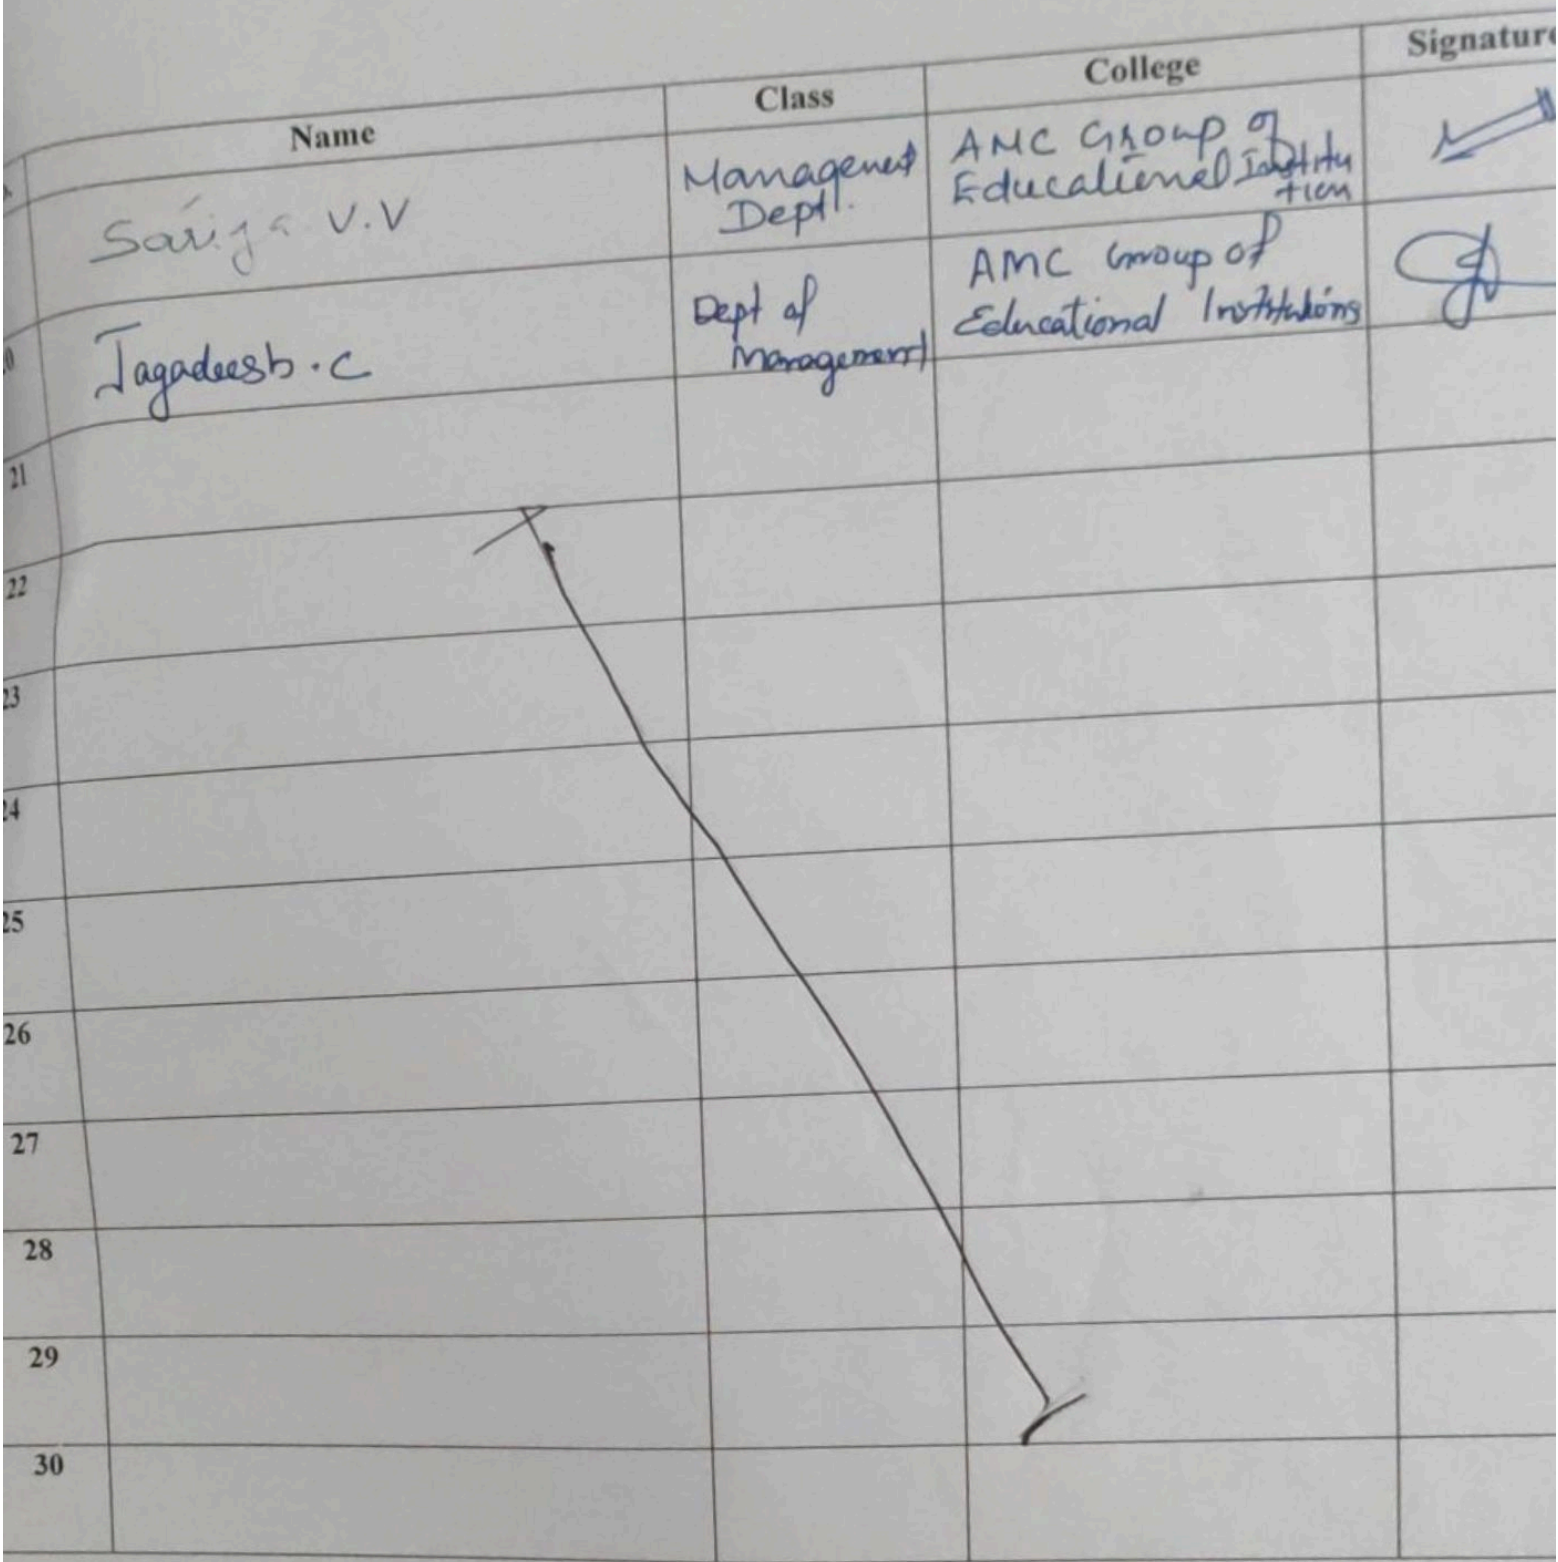 Name Class College Signature
Sariga V.V Management AMC Group of
Dept. Educational Institu
tion
Jagadeesh.C Dept of AMC Group of
Management Educational Institutions
21
22
23
24
25
26
27
28
29
30